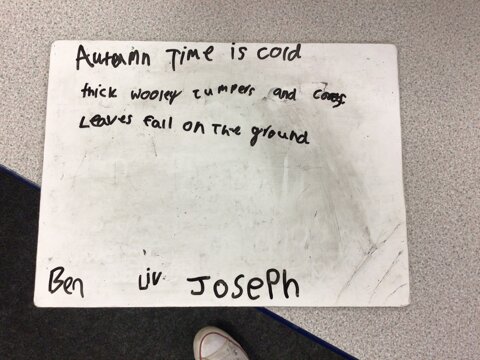 Autumn Time is cold
thick wooley Jumpers and
Leaves fall on The ground
Ben Liv JosePh